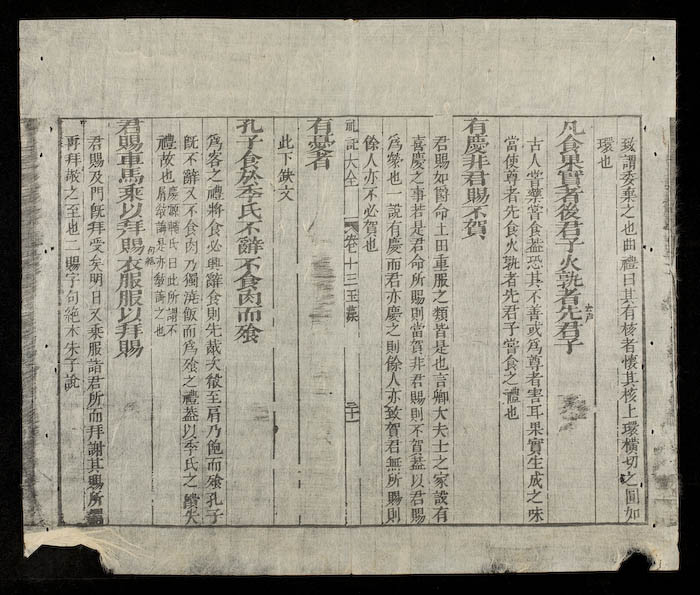 致謂委棄之也曲禮曰其有核者懷其核上環橫切之圓如
環也
凡食果實者後君子火孰者先君子
古人嘗藥嘗食蓋恐其不善或爲尊者害耳果實生成之味
當使尊者先食火孰者先君子嘗食之禮也
有慶非君賜不賀
君賜如爵命土田車服之類皆是也言卿大夫士之家設有
喜慶之事若是君命所賜則當賀非君賜則不賀蓋以君賜
爲榮也一說有慶而君亦慶之則餘人亦致賀君無所賜則
餘人亦不必賀也
有憂者
禮記大全 卷十三玉藻 三十一
此下缺文
孔子食於季氏不辭不食肉而飧
爲客之禮將食必興辭食則先胾次殽至肩乃飽而飧孔子
旣不辭又不食肉乃獨澆飯而爲飧之禮蓋以季氏之饋失
禮故也慶源輔氏曰此所謂不
屑教誨是亦教誨之也
君賜車馬乘以拜賜衣服服以拜賜
君賜及門旣拜受矣明日又乘服詣君所而拜謝其賜所謂
再拜敬之至也二賜字句絕本朱子說